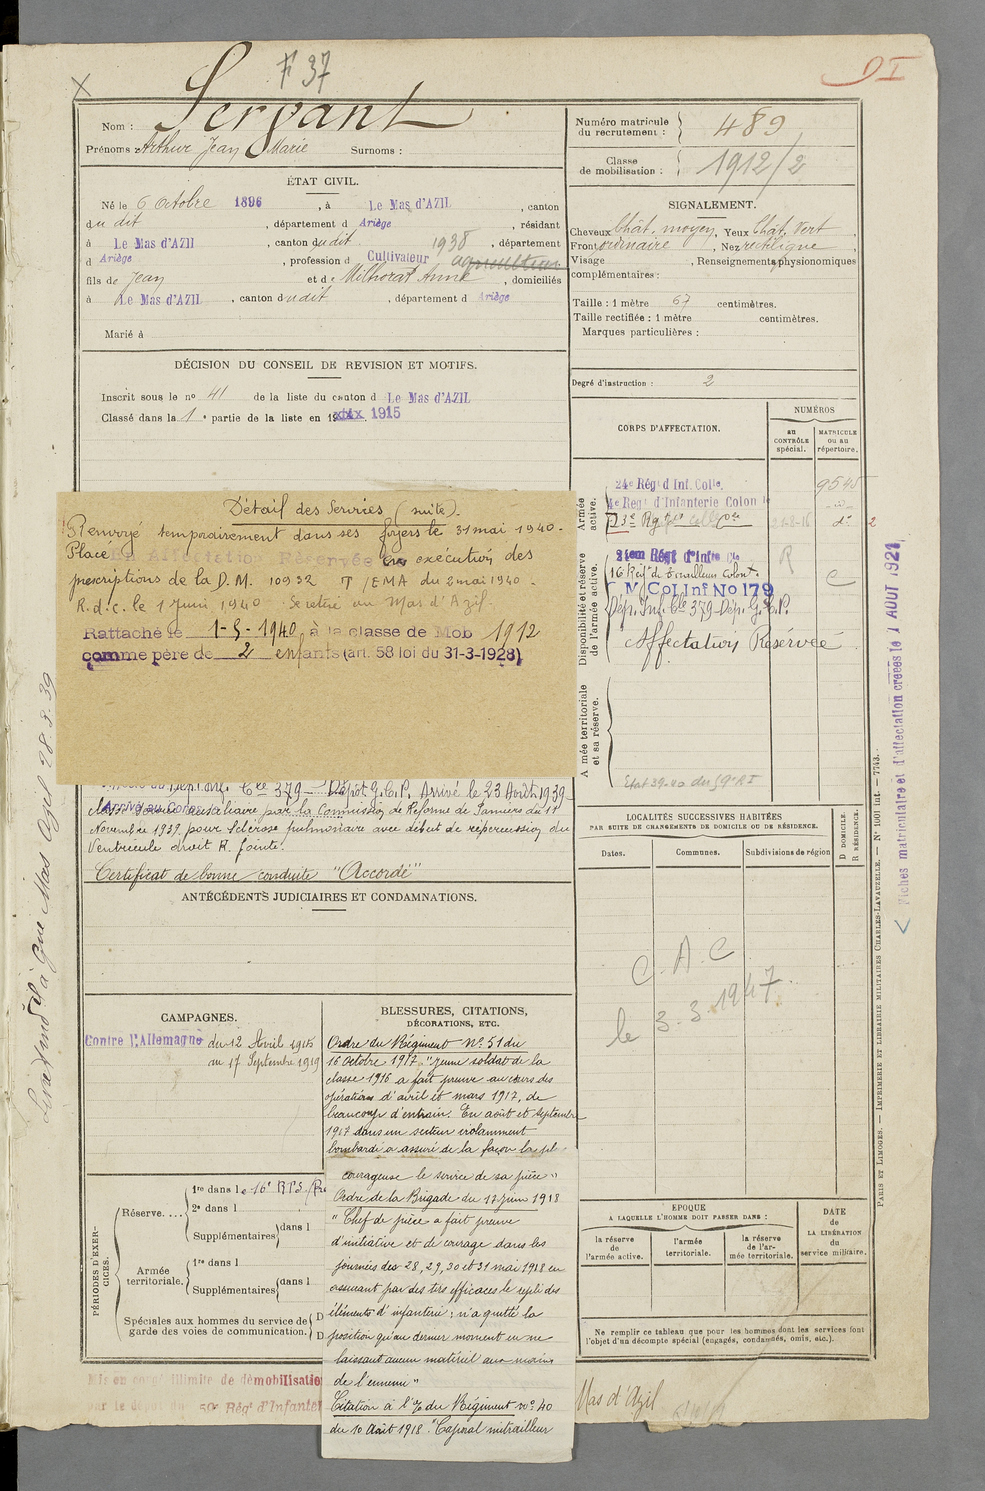 F 37
DI
Nom : Servant
Prénoms : Arthur Jean Marie Surnoms :
Numéro matricule du recrutement : 489
Classe de mobilisation : 1912/2
ÉTAT CIVIL.
Né le 6 Octobre 1896, à Le Mas d'AZIL, canton
du dit, département d Ariège, résidant
à Le Mas d'AZIL, canton du dit 1938, département
d Ariège, profession d Cultivateur agriculteur
fils de Jean et de Milhorat Anne, domiciliés
à Le Mas d'AZIL, canton du dit, département d Ariège
Marié à
SIGNALEMENT.
Cheveux Chât. moyen, Yeux Chat. Vert
Front ordinaire, Nez rectiligne
Visage , Renseignements physionomiques
complémentaires :
Taille : 1 mètre 67 centimètres.
Taille rectifiée : 1 mètre centimètres.
Marques particulières :
Degré d'instruction : 2
DÉCISION DU CONSEIL DE REVISION ET MOTIFS.
Inscrit sous le no 41 de la liste du canton d Le Mas d'AZIL
Classé dans la 1e partie de la liste en 19 1915
CORPS D'AFFECTATION.
NUMÉROS
au CONTRÔLE spécial.
MATRICULE ou au répertoire.
Armée active.
24e Régt d'Inf. Colle. 9545
4e Regt d'Infanterie Colon le -id-
23e Rgt Colle 21-8-16 do 2
Disponibilité et réserve de l'armée active.
21em Regt d'Infie Cle R
16 Regt de tirailleurs Colont. C
M Col Inf No 179
Dép. Inf. Cle 379 Dép. G.C.P.
Affectation Réservée
Armée territoriale et sa réserve.
Détail des Services (suite).
Renvoyé temporairement dans ses foyers le 31 mai 1940.
Placé En Affectation Réservée en exécution des
prescriptions de la D.M. 10932 T/EMA du 2 mai 1940.
R.d.c. le 1 Juin 1940 Se retire au Mas d'Azil.
Rattaché le 1-5-1940, à la classe de Mob 1912
comme père de 2 enfants (art. 58 loi du 31-3-1928)
Cie 379 - Dépôt G.C.P. Arrivé le 23 Août 1939
Arrivé au Corps
Classé service auxiliaire par la Commission de Réforme de Pamiers du 11
Novembre 1939 pour Sclérose pulmonaire avec début de répercussion du
Ventricule droit R. Jointe.
Certificat de bonne conduite "Accordé"
ANTÉCÉDENTS JUDICIAIRES ET CONDAMNATIONS.
LOCALITÉS SUCCESSIVES HABITÉES
PAR SUITE DE CHANGEMENTS DE DOMICILE OU DE RÉSIDENCE.
Dates. Communes. Subdivisions de région
D DOMICILE. R RÉSIDENCE.
C.A.C
le 3-3-1947
CAMPAGNES.
Contre l'Allemagne du 12 Avril 1915
au 17 Septembre 1919
BLESSURES, CITATIONS,
DÉCORATIONS, ETC.
Ordre du Régiment No 51 du
16 Octobre 1917. "Jeune soldat de la
classe 1916 a fait preuve au cours des
opérations d'avril et mars 1917, de
beaucoup d'entrain. En août et septembre
1917 dans un secteur violamment
bombardé a assuré de la façon la pl
courageuse le service de sa pièce"
Ordre de la Brigade du 17 juin 1918
"Chef de pièce a fait preuve
d'initiative et de courage dans les
journées des 28, 29, 30 et 31 mai 1918 en
assurant par des tirs efficaces le repli des
éléments d'infanterie ; n'a quitté la
position qu'au dernier moment en ne
laissant aucun matériel aux mains
de l'ennemi"
Citation à l'O du Régiment no 40
du 10 Août 1918. "Caporal mitrailleur
PÉRIODES D'EXERCICES.
Réserve....
1re dans le 16e R.T.S.
2e dans l
Supplémentaires dans l
Armée territoriale.
1re dans l
Supplémentaires dans l
Spéciales aux hommes du service de garde des voies de communication. D D
EPOQUE
A LAQUELLE L'HOMME DOIT PASSER DANS :
la réserve de l'armée active.
l'armée territoriale.
la réserve de l'armée territoriale.
DATE de LA LIBÉRATION du service militaire.
Ne remplir ce tableau que pour les hommes dont les services font
l'objet d'un décompte spécial (engagés, condamnés, omis, etc.).
Mis en congé illimité de démobilisatio
par le dépôt du 50e Régt d'Infanter
Mas d'Azil
Fiches matriculaire et d'affectation créées le 1 AOUT 1921
PARIS ET LIMOGES. — IMPRIMERIE ET LIBRAIRIE MILITAIRES CHARLES-LAVAUZELLE. — No 1001 Int. — 7743.